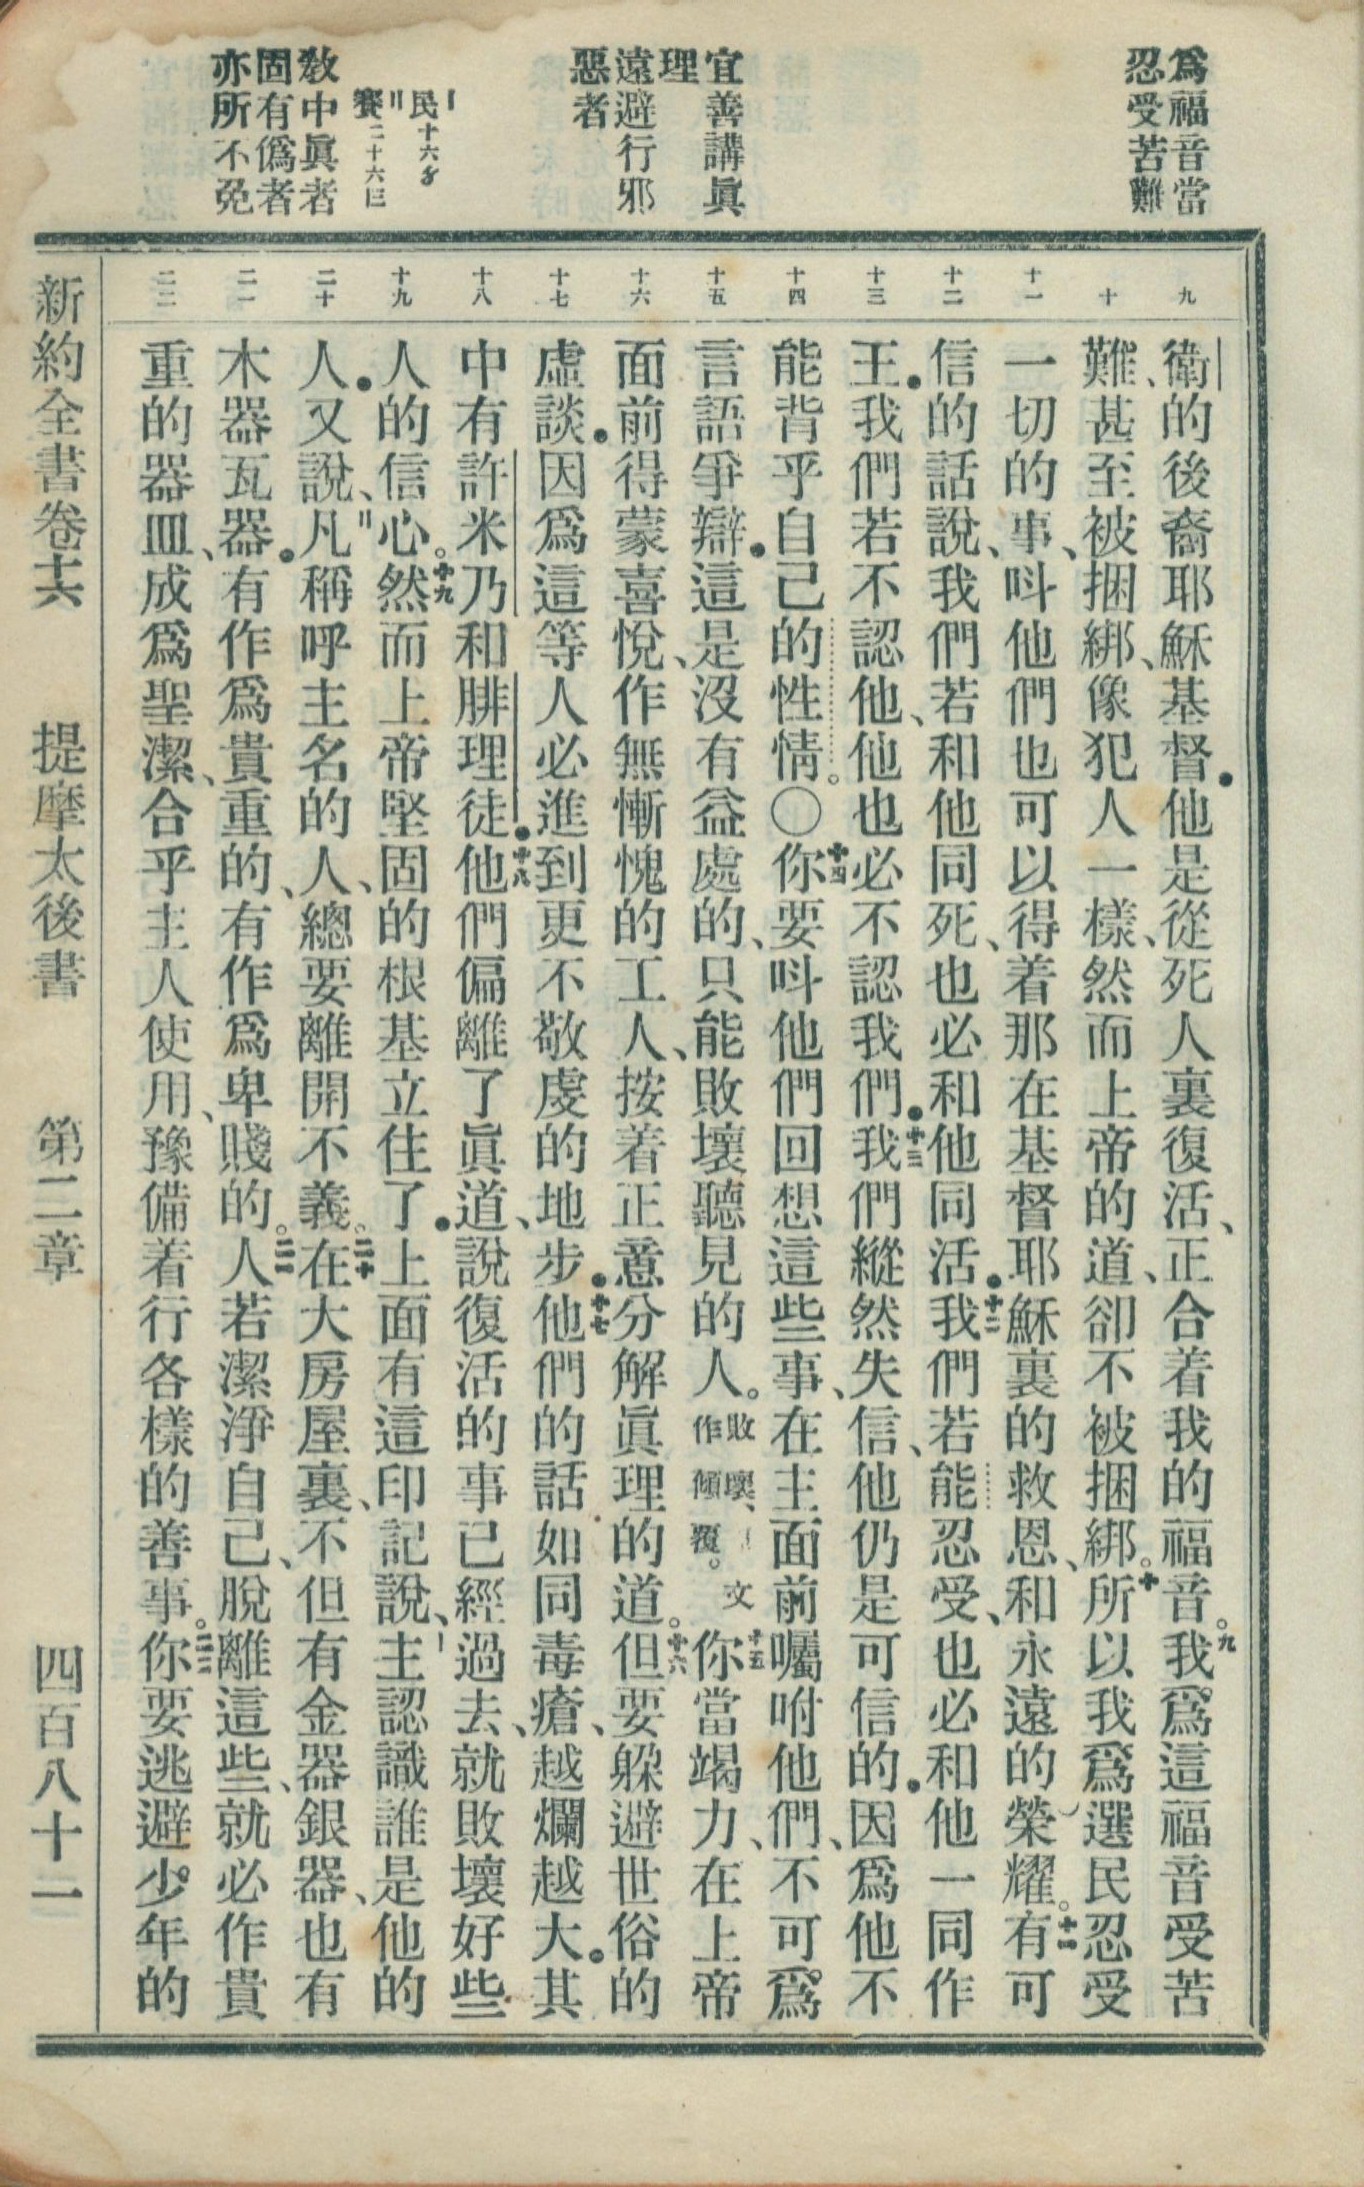 爲福音當
忍受苦難
宜善講眞
理
遠避行邪
惡者
民十六
賽二十六
敎中眞者
固有僞者
亦所不免
九
十
十一
十二
十三
十四
十五
十六
十七
十八
十九
二十
二一
二二
衛的後裔耶穌基督●他是從死人裏復活、正合着我的福音。九我爲這福音受苦
難、甚至被捆綁、像犯人一樣、然而上帝的道、卻不被捆綁。十所以我爲選民忍受
一切的事、呌他們也可以得着那在基督耶穌裏的救恩、和永遠的榮耀。十一有可
信的話說、我們若和他同死、也必和他同活●十二我們若能忍受、也必和他一同作
王●我們若不認他、他也必不認我們●十三我們縱然失信、他仍是可信的●因爲他不
能背乎自己的性情。〇十四你要呌他們回想這些事、在主面前囑咐他們、不可爲
言語爭辯●這是沒有益處的、只能敗壞聽見的人。敗壞、文作傾覆。十五你當竭力、在上帝
面前得蒙喜悅、作無慚愧的工人、按着正意分解眞理的道。十六但要躲避世俗的
虛談●因爲這等人必進到更不敬虔的地步●十七他們的話如同毒瘡、越爛越大●其
中有許米乃和腓理徒●十八他們偏離了眞道、說復活的事已經過去、就敗壞好些
人的信心。十九然而上帝堅固的根基立住了●上面有這印記說、主認識誰是他的
人●又說、凡稱呼主名的人、總要離開不義。二十在大房屋裏、不但有金器銀器、也有
木器瓦器●有作爲貴重的、有作爲卑賤的。二一人若潔淨自己、脫離這些、就必作貴
重的器皿、成爲聖潔、合乎主人使用、豫備着行各樣的善事。二二你要逃避少年的
新約全書卷十六　提摩太後書　第二章　四百八十一